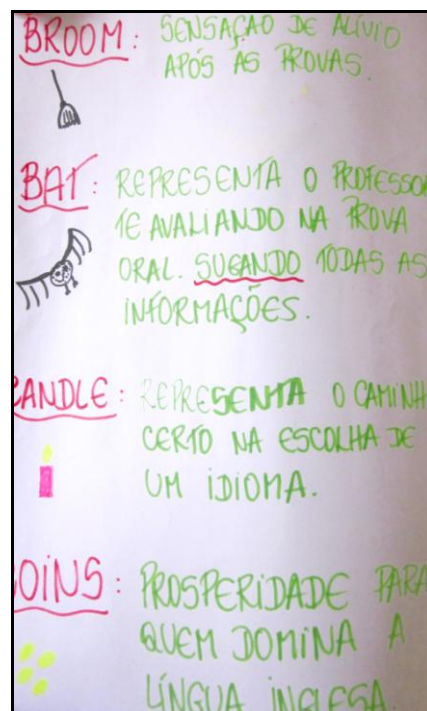 BROOM: SENSAÇÃO DE ALÍVIO
APÓS AS PROVAS.
BAT: REPRESENTA O PROFESSOR
TE AVALIANDO NA PROVA
ORAL. SUGANDO TODAS AS
INFORMAÇÕES.
CANDLE: REPRESENTA O CAMINH
CERTO NA ESCOLHA DE
UM IDIOMA.
OINS: PROSPERIDADE PARA
QUEM DOMINA A
LÍNGUA INGLESA.